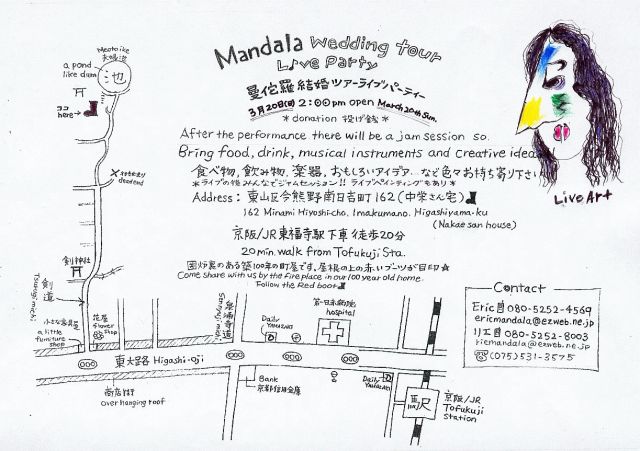 Mandala Wedding tour
L♪ve Party
曼佗羅 結婚ツアーライブパーティー
3月20日(日) 2:00pm open March 20th Sun.
*donation 投げ銭*
After the performance there will be a jam session so.
Bring food, drink, musical instruments and creative idea
食べ物, 飲み物, 楽器, おもしろいアイデア... など色々お持ち寄り下さい
*ライブの後みんなでジャムセッション!! ライブペインティングもあり*
Address: 東山区今熊野南日吉町162(中学さん宅)
162 Minami Hiyoshi-cho, Imakumano, Higashiyama-ku
(Nakae san house)
京阪/JR東福寺駅下車 徒歩20分
20min. walk from Tofukuji Sta.
囲炉裏のある築100年の町屋です。屋根の上の赤いブーツが目印☆
Come share with us by the fire place in our 100 year old home.
Follow the Red boot
Live Art
Contact
Eric 080-5252-4569
ericmandala@ezweb.ne.jp
リエ 080-5252-8003
riemandala@ezweb.ne.jp
(075)531-3575
Meotoike
夫婦池
a pond
like dam
池
ココ
here→
deadend
剣神社
剣道
Tsurugi michi
小さな家具屋
a little
furniture shop
花屋
flower
shop
泉涌寺道
Sennyuji michi
第一日赤病院
hospital
Daily
YAMAZAKI
東大路 Higashi-oji
商店街
over hanging roof
Bank
京都信用金庫
Daily
YAMAZAKI
駅
京阪/JR
Tofukuji
Station